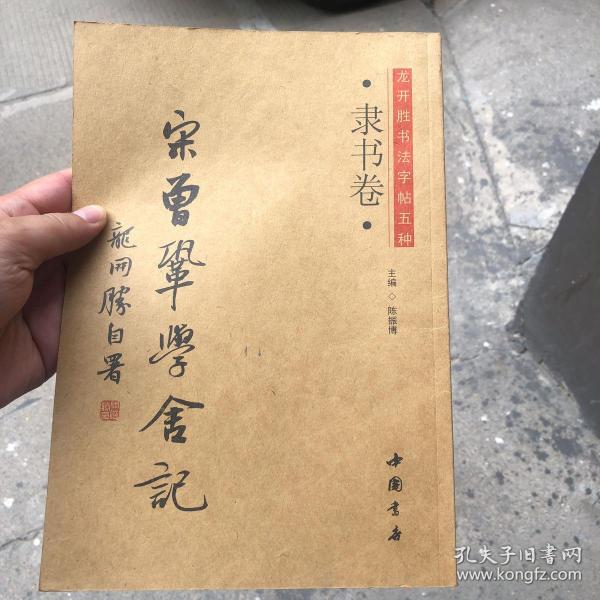 龙开胜书法字帖五种
·隶书卷·
主编◇陈振博
宋曾鞏學舍記
龍開勝自署
中国书店
孔夫子旧书网
www.kongfz.com